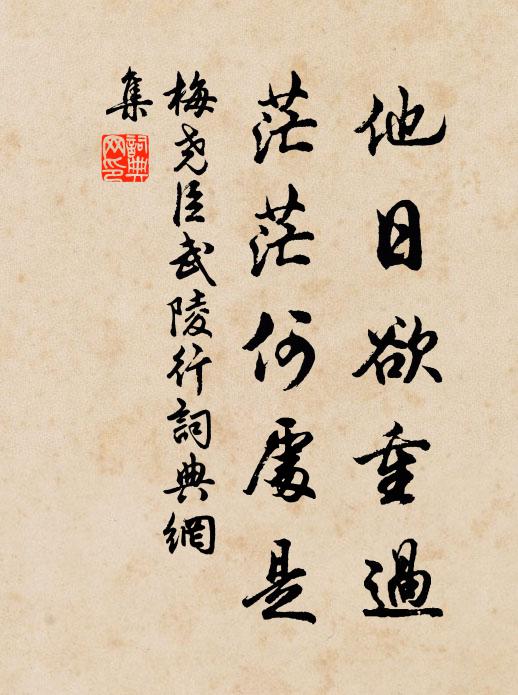 他日欲重過
茫茫何處是
梅堯臣武陵行詞典網
集
詞典
网印